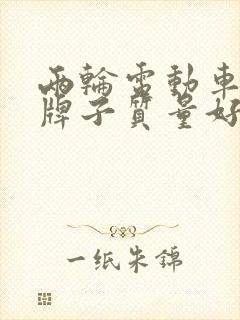 兩輪電動車
牌子質量好
一纸朱錦